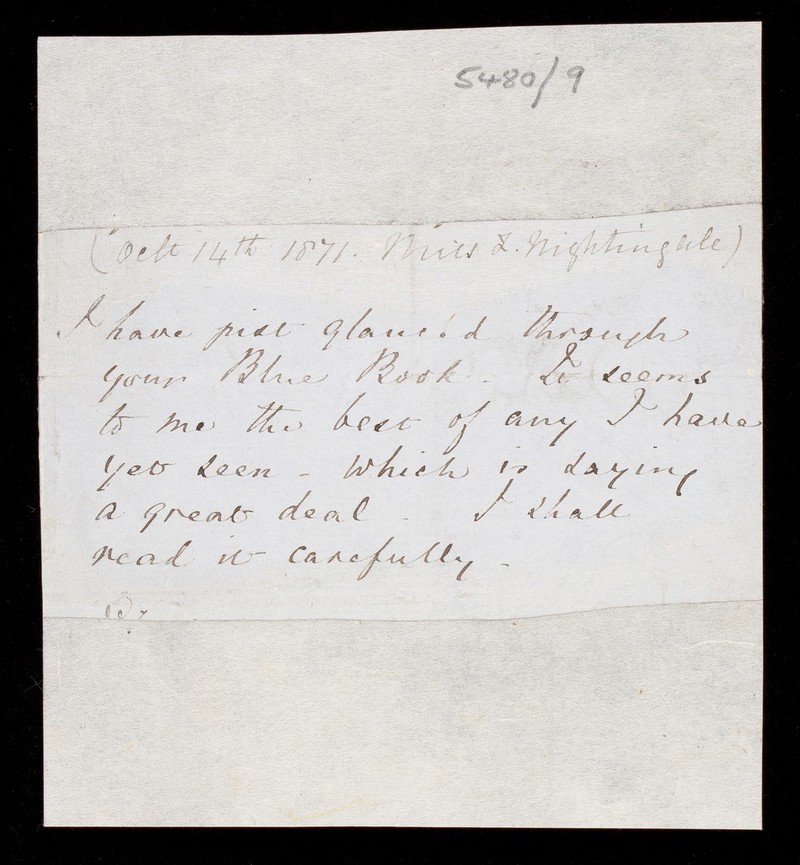 5480/9
(Oct 14th 1871. Miss F. Nightingale)
I have just glanced through
your Blue Book. It seems
to me the best of any I have
yet seen - which is saying
a great deal. I shall
read it carefully -